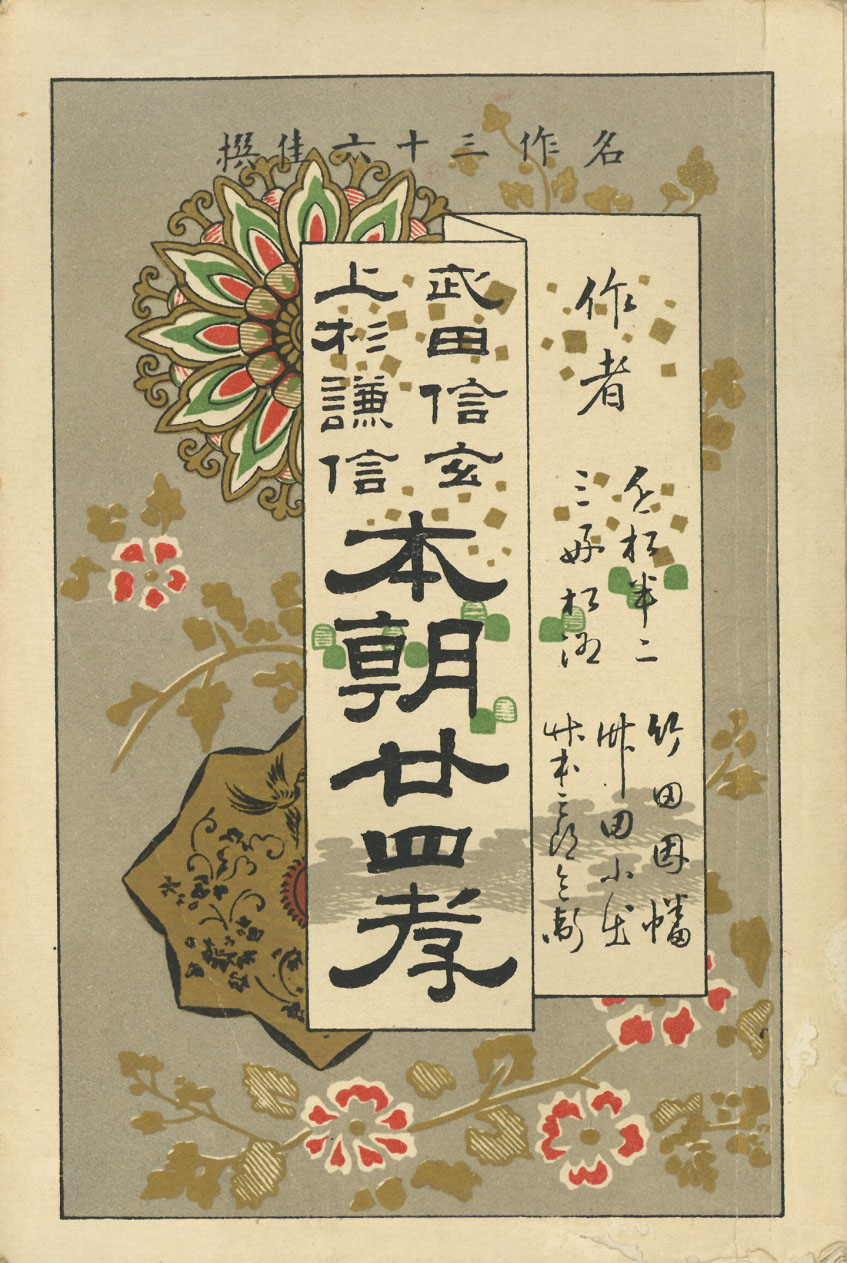 名作三十六佳撰
作者
近松半二
三好松洛
竹田因幡
竹田小出
竹本三郎兵衛
武田信玄
上杉謙信
本朝廿四孝